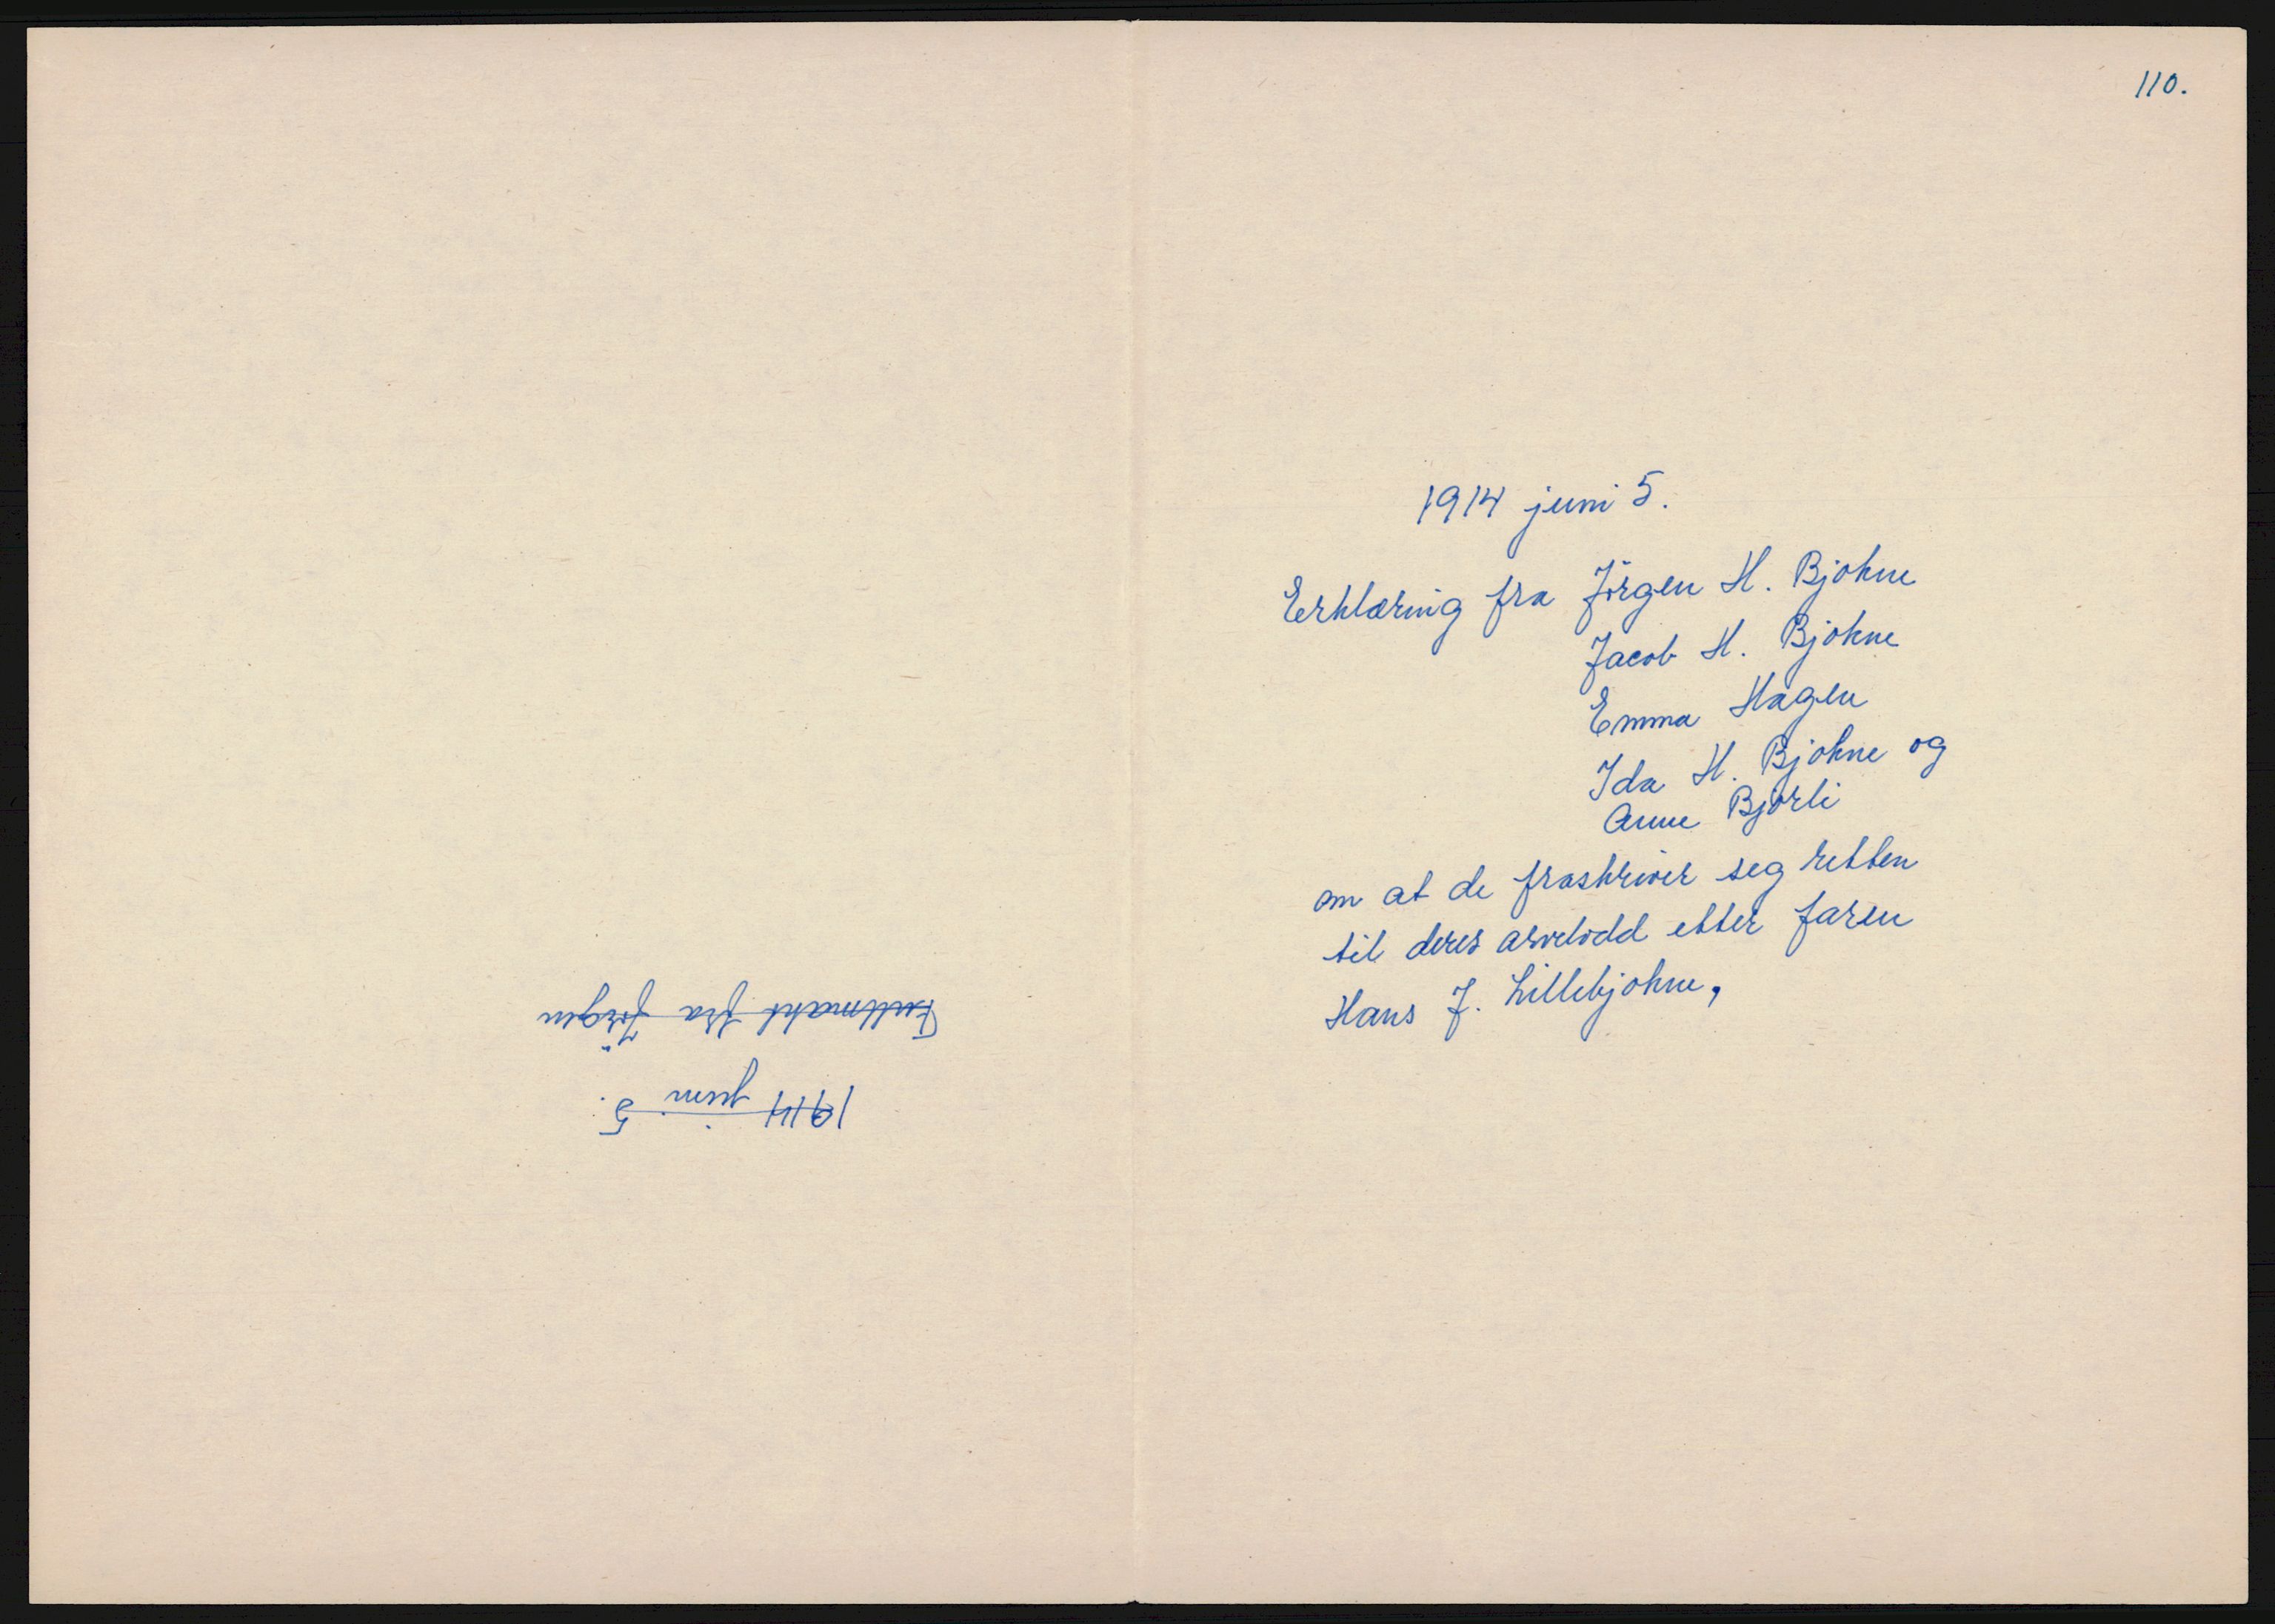 110.
1914 juni 5.
Erklæring fra Jörgen H. Bjokne
Jacob H. Bjokne
Emma Hagen
Ida H. Bjokne og
Anne Bjorli
om at de fraskriver seg retten
til deres arvelodd etter faren
Hans J. Lillebjokne,
1914 juni 5.
Fullmakt fra Jörgen